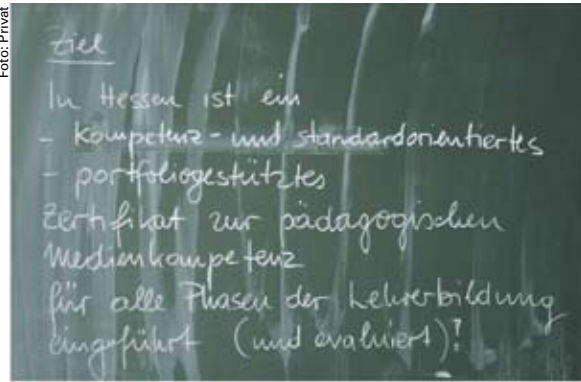 Foto: Privat
Ziel
In Hessen ist ein
- kompetenz- und standardorientiertes
- portfoliogestütztes
Zertifikat zur pädagogischen
Medienkompetenz
für alle Phasen der Lehrerbildung
eingeführt (und evaluiert)!